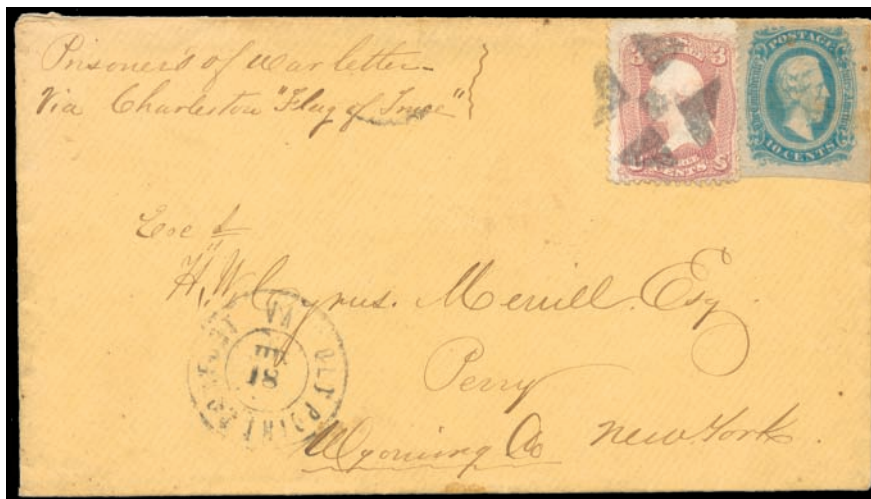 Prisoner's of war letter
Via Charleston "Flag of Truce"
3 3
CENTS
POSTAGE
10 CENTS
H. W.
Cyrus. Merrill Esq
Perry
Wyoming Co New York.
OLD POINT COMFORT VA
18